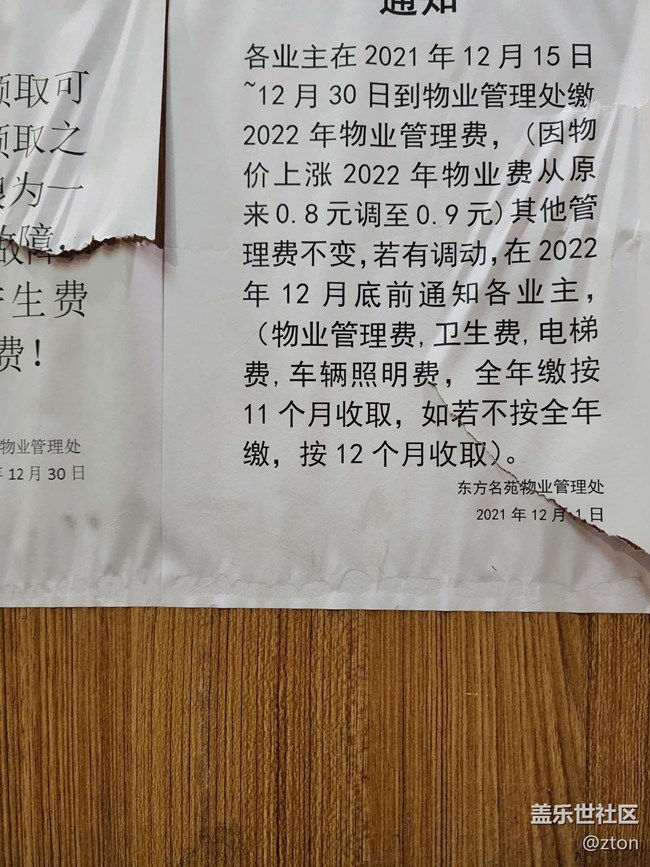 领取可
领取之
为一
故障,
生费
费！
物业管理处
年 12 月 30 日
通知
各业主在 2021 年 12 月 15 日
~12 月 30 日到物业管理处缴
2022 年物业管理费，（因物
价上涨 2022 年物业费从原
来 0.8 元调至 0.9 元)其他管
理费不变,若有调动,在 2022
年 12 月底前通知各业主，
（物业管理费,卫生费,电梯
费,车辆照明费，全年缴按
11 个月收取，如若不按全年
缴，按 12 个月收取）。
东方名苑物业管理处
2021 年 12 月 1 日
盖乐世社区
@zton